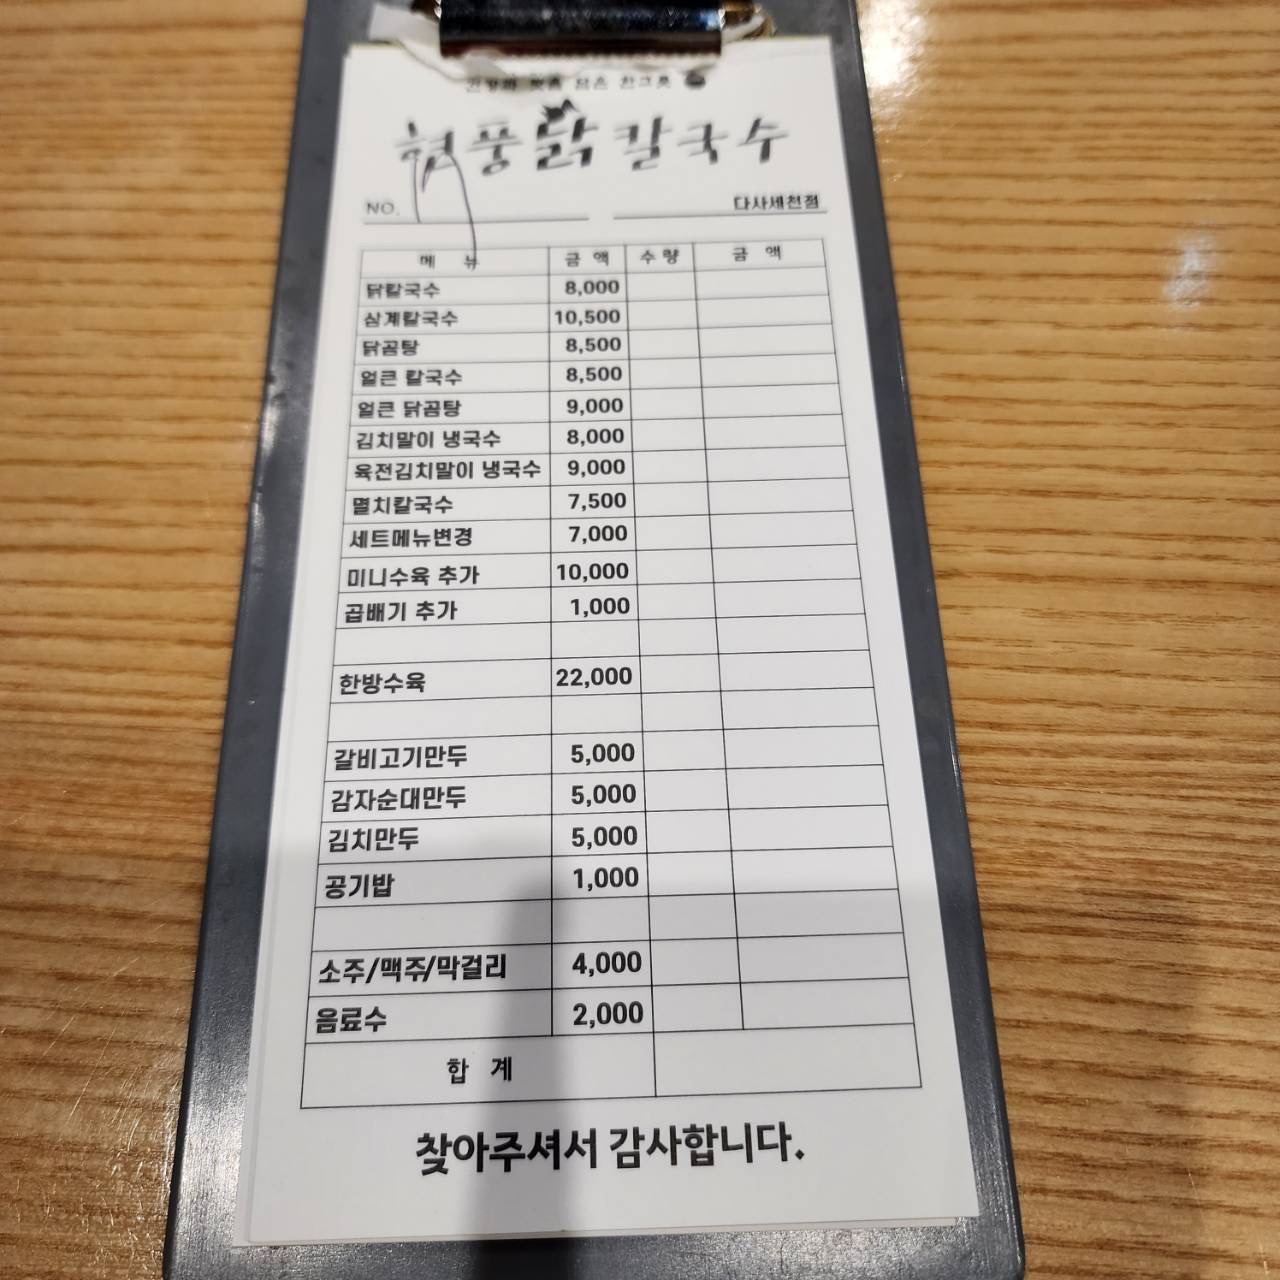 현풍닭칼국수
NO.
다사세천점
메 뉴 금 액 수 량 금 액
닭칼국수 8,000
삼계칼국수 10,500
닭곰탕 8,500
얼큰 칼국수 8,500
얼큰 닭곰탕 9,000
김치말이 냉국수 8,000
육전김치말이 냉국수 9,000
멸치칼국수 7,500
세트메뉴변경 7,000
미니수육 추가 10,000
곱배기 추가 1,000
한방수육 22,000
갈비고기만두 5,000
감자순대만두 5,000
김치만두 5,000
공기밥 1,000
소주/맥쥬/막걸리 4,000
음료수 2,000
합 계
찾아주셔서 감사합니다.